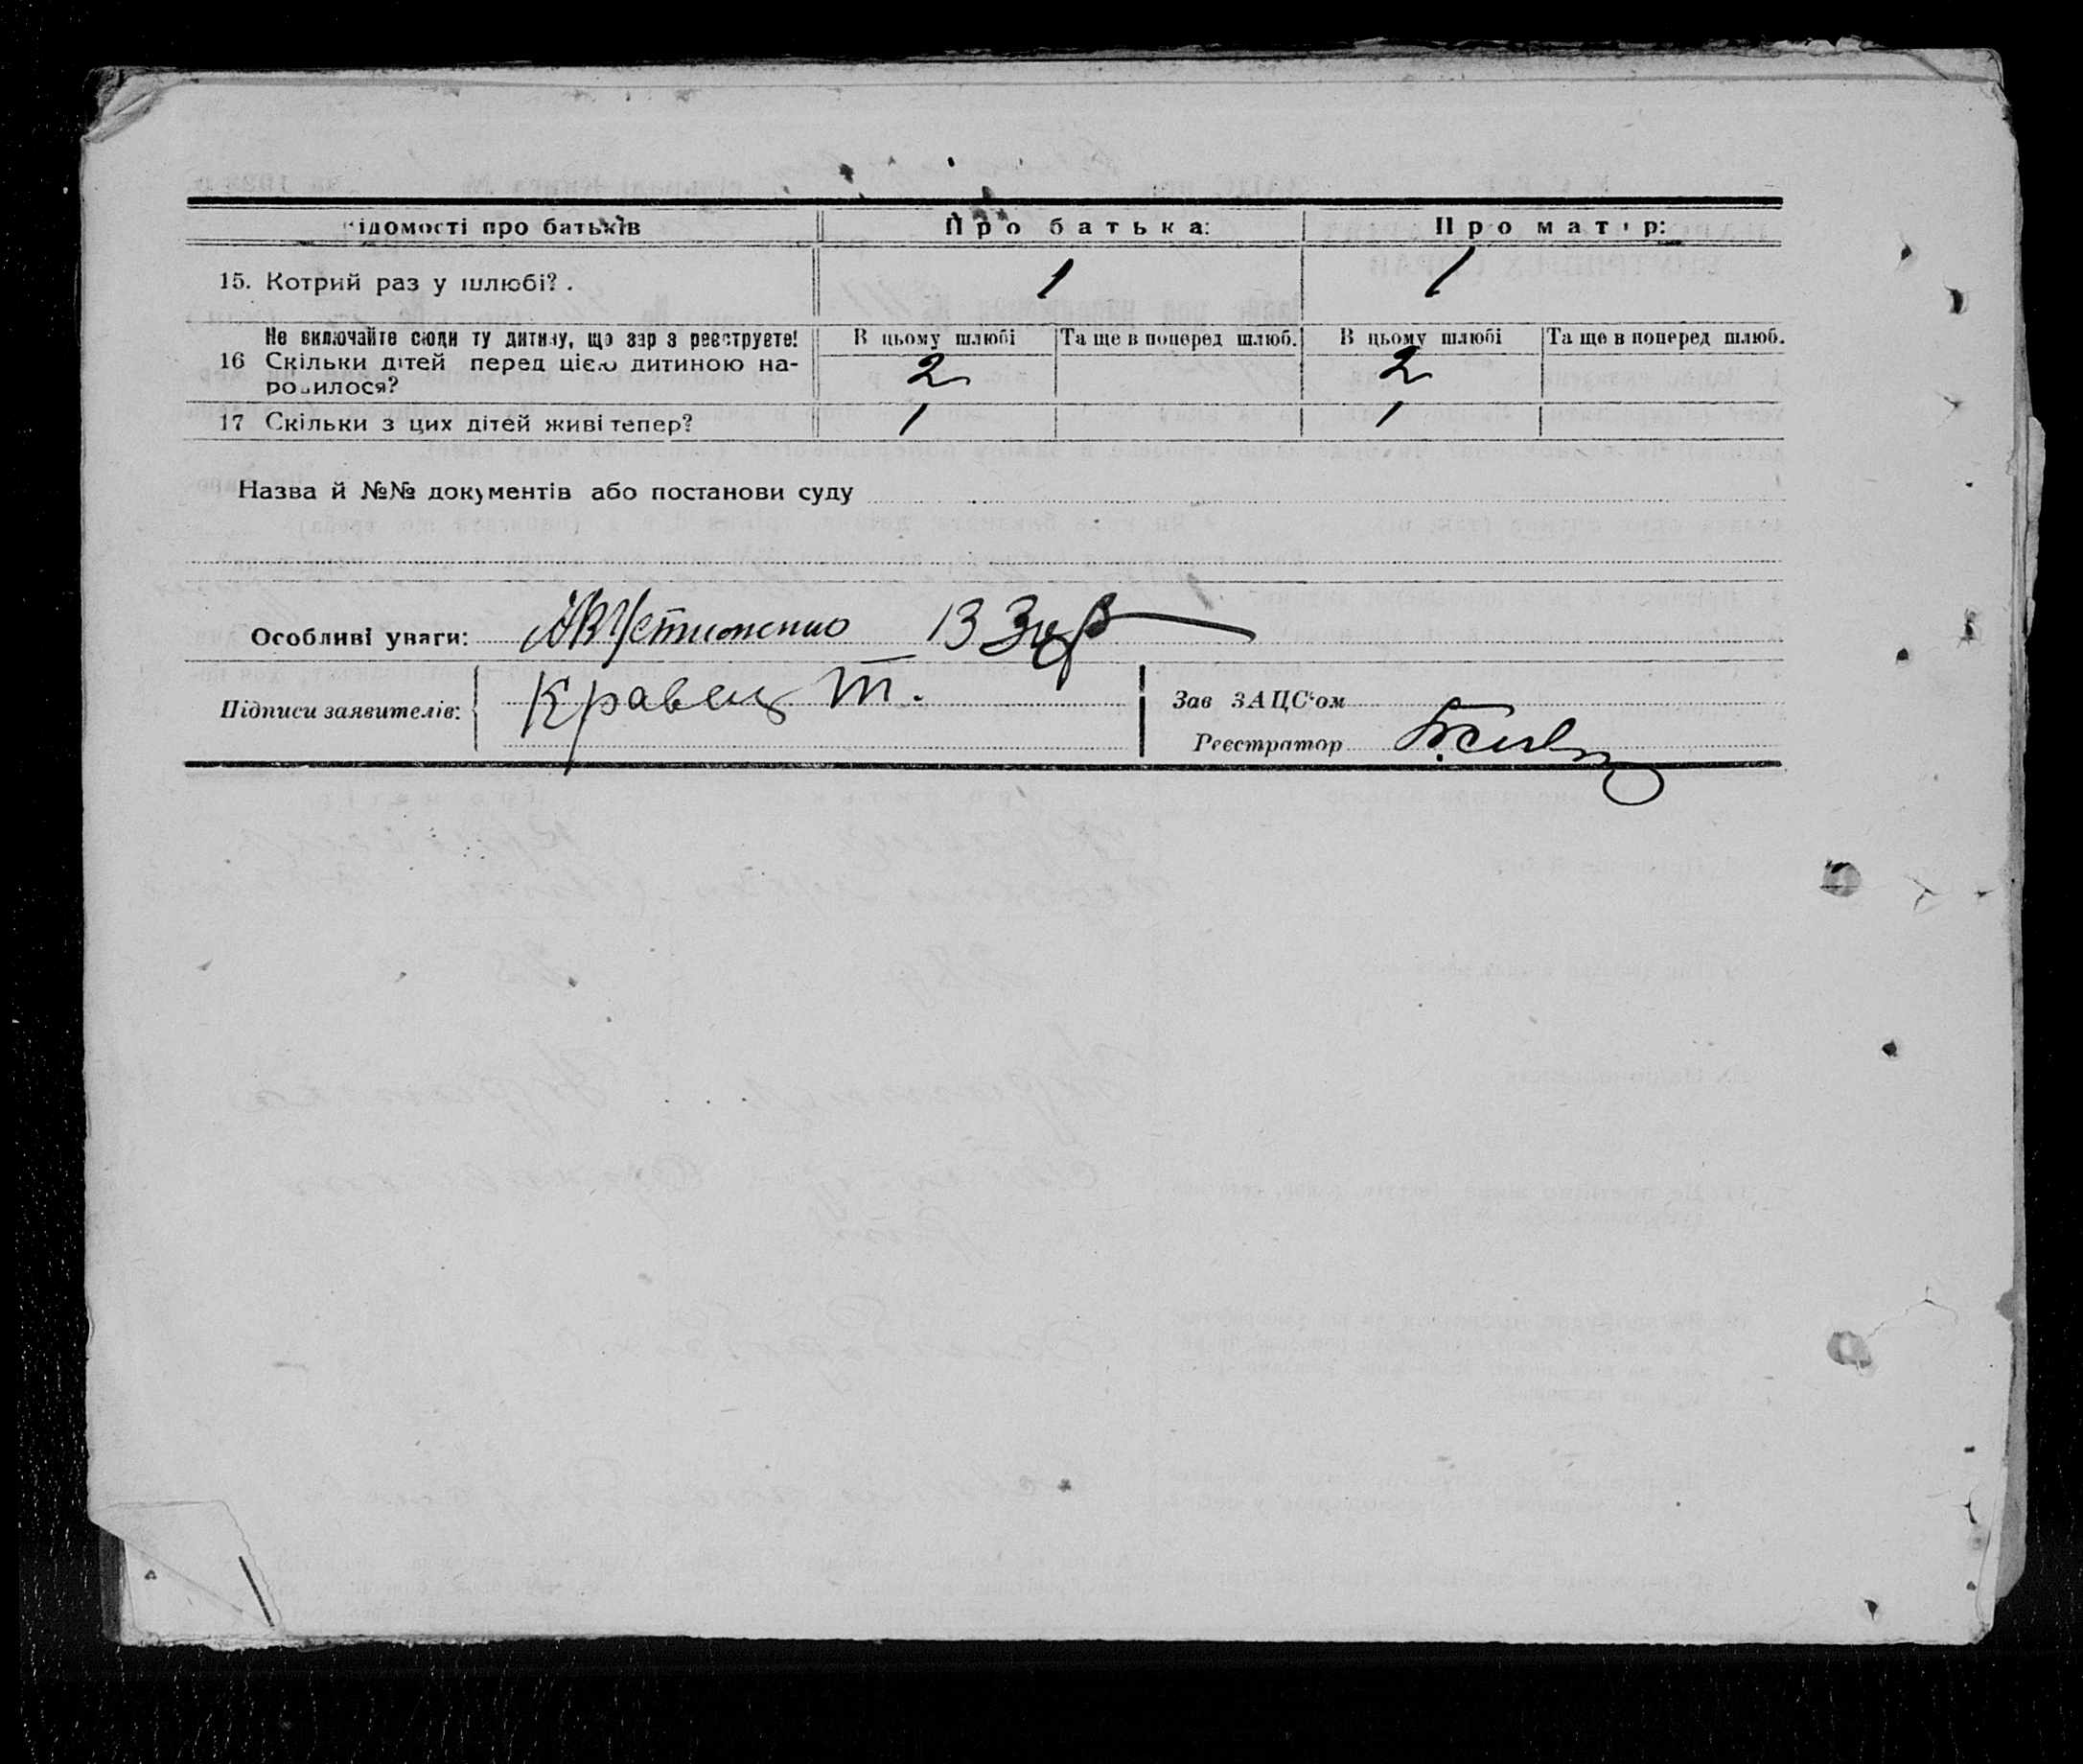 Відомості про батьків Про батька: Про матір:
15. Котрий раз у шлюбі? . 1 1
Не включайте сюди ту дитину, що зараз реєструєте! В цьому шлюбі Та ще в поперед шлюб. В цьому шлюбі Та ще в поперед шлюб.
16 Скільки дітей перед цією дитиною на-
родилося? 2 2
17 Скільки з цих дітей живі тепер? 1 1
Назва й №№ документів або постанови суду
Особливі уваги: Устименко
Підписи заявителів: Кравець Т.
Зав ЗАЦС‘ом
Реєстратор